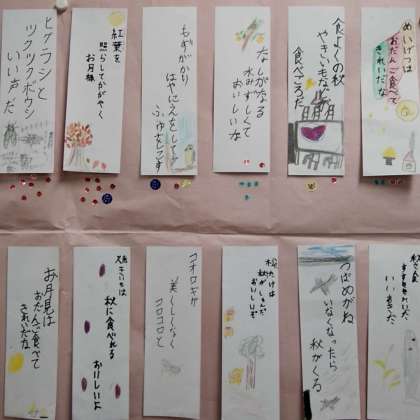 めいげつは
おだんご食べて
きれいだな
食よくの秋
やきいもなんこ
食べてろだ
なしがなる
水みずしくて
おいしいな
もずがかり
はやにえをして
ふゆをこす
紅葉を
照らしてかがやく
お月様
ヒグラシと
ツクツクボウシ
いい声だ
つばめがね
いなくなったら
秋がくる
松たけは
秋がしゅんだ
おいしいぞ
コオロギが
美しくなく
コロコロと
焼きいもは
秋に食べれる
おいしいよ
お月見は
おだんご食べて
きれいだな